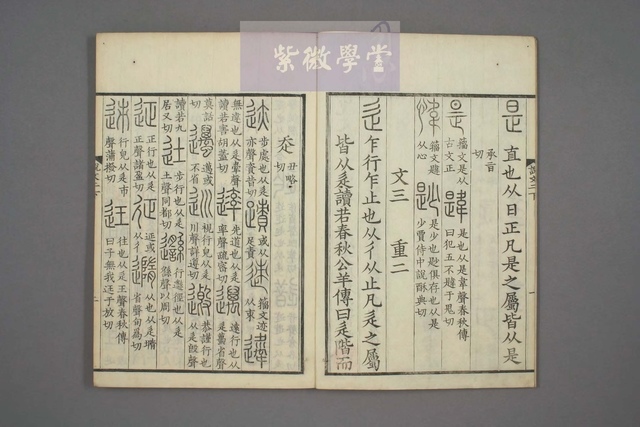 紫微學堂
是 直也从日正凡是之屬皆从是
承旨切
籒文是从古文正
韙 是也从是韋聲春秋傳曰犯五不韙于鬼切
籒文韙从心
尟 是少也尟俱存也从是少賈侍中說酥典切
文三 重二
辵 乍行乍止也从彳从止凡辵之屬
皆从辵讀若春秋公羊傳曰辵階而
走 丑略切
迹 步處也从辵亦聲資昔切
蹟 或从足責
籒文迹从朿
無違也从辵舝聲讀若害胡蓋切
先道也从辵率聲疏密切
遠行也从辵蠆省聲莫話切
邁或不省
巡 視行皃从辵川聲詳遵切
恭謹行也从辵𣪘聲讀若九居又切
步行也从辵土聲同都切
行邎徑也从辵繇聲以周切
正行也从辵正聲諸盈切
延或从彳
隨 从也从辵𡐦省聲旬為切
行皃从辵巿聲蒲撥切
往也从辵王聲春秋傳曰子無我迋于放切